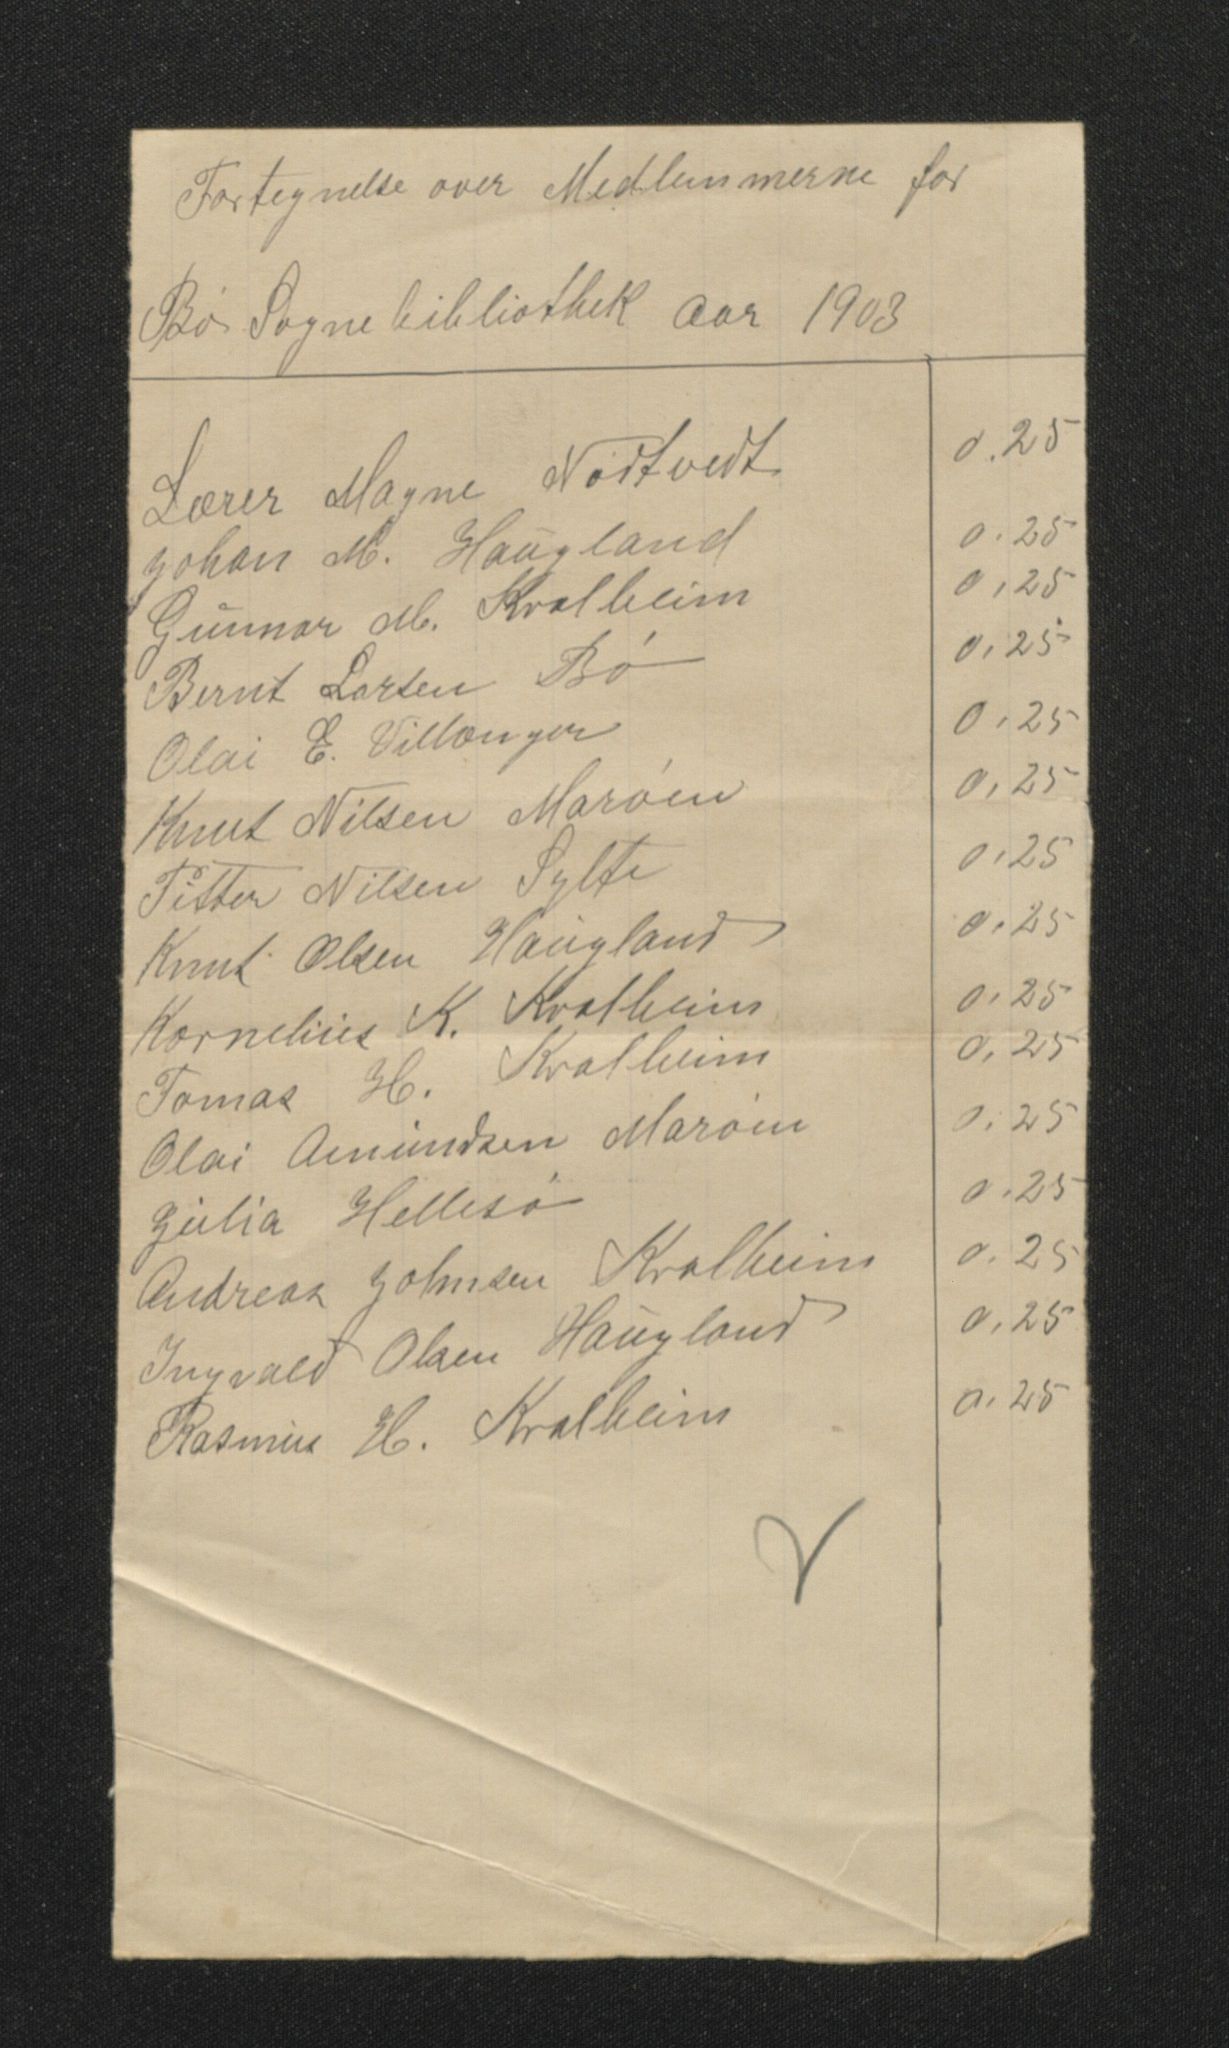 Fortegnelse over Medlemmerne for
Bø Sognebibliothek aar 1903
Lærer Magne Nodtvedt 0.25
Johan M. Haugland 0.25
Gunnar M. Kvalheim 0.25
Bernt Larsen Bø 0.25
Olai E. Villanger 0.25
Knut Nilsen Marøen 0.25
Pitter Nilsen Sylte 0.25
Knut Olsen Haugland 0.25
Kornelius K. Kvalheim 0.25
Tomas H. Kvalheim 0.25
Olai Amundsen Marøen 0.25
Julia Hellesø 0.25
Andreas Johnsen Kvalheim 0.25
Ingvald Olsen Haugland 0.25
Rasmus H. Kvalheim 0.25